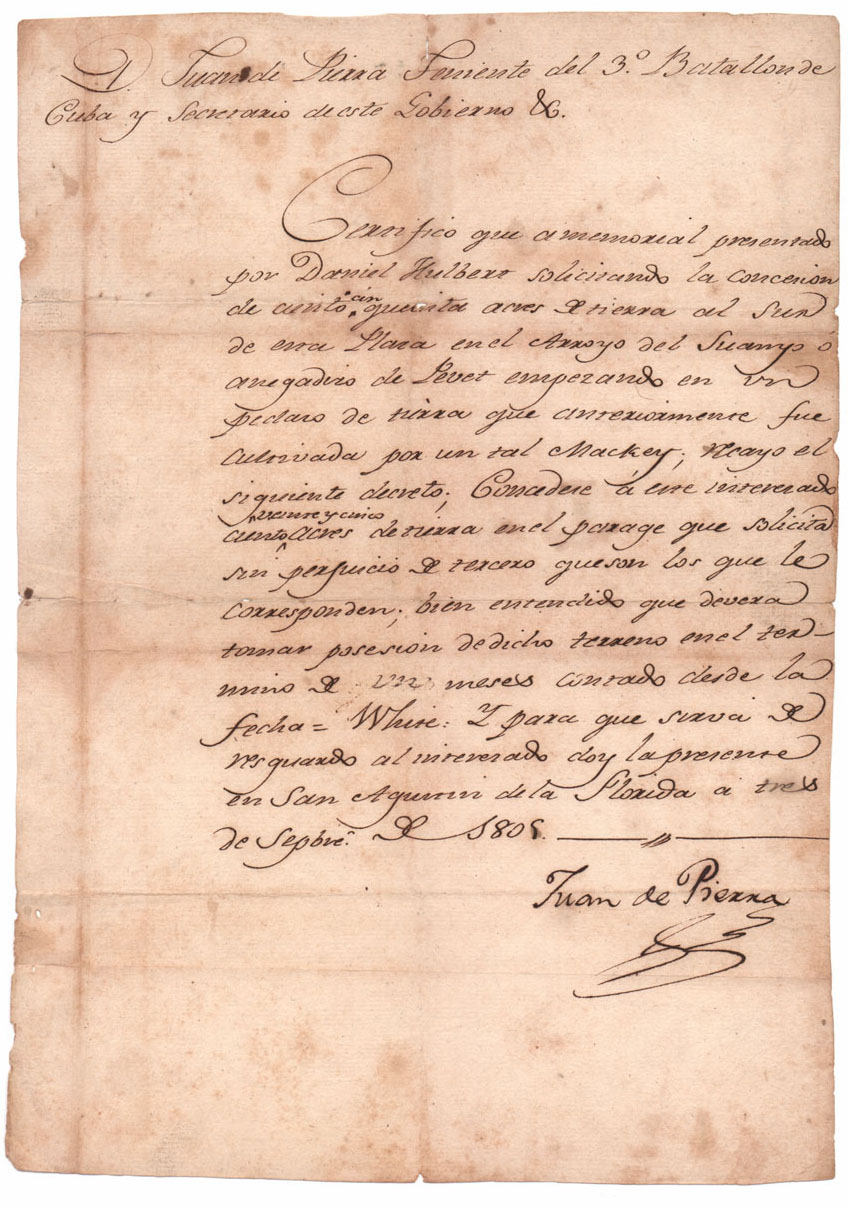 D. Juan de Pierra Teniente del 3.º Batallon de
Cuba y Secretario de este Gobierno &c.
Certifico que a memorial presentado
por Daniel Hulbert solicitando la concesion
de ciento cinquenta acres de tierra al Sur
de esta Plaza en el Arroyo del Suanys ó
anegadizo de Pevet empezando en un
pedazo de tierra que anteriormente fue
cultivada por un tal Mackey; recayo el
siguiente decreto; Concedese á este interesado
ciento veinte y cinco acres de tierra en el parage que solicita
sin perjuicio de tercero que son los que le
corresponden; bien entendido que devera
tomar posesion de dicho terreno en el ter-
mino de un meses contado desde la
fecha = White: Y para que sirva de
resguardo al interesado doy la presente
en San Agustin de la Florida a tres
de Sepbre. de 1805.
Juan de Pierra